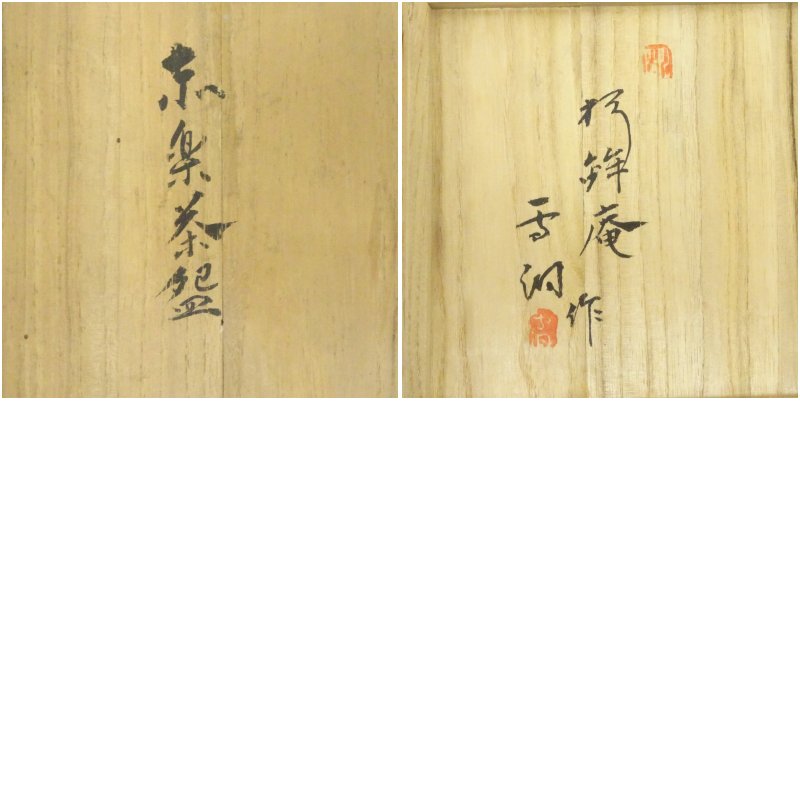 赤楽茶盌
杉鉾庵
雪洞作